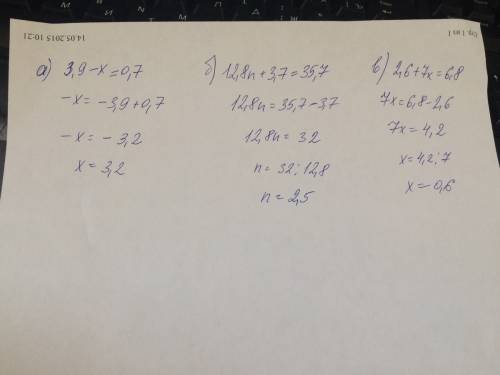 Стр. 1 из 1
14.05.2015 10:21
а) 3,9-x=0,7
-x= -3,9+0,7
-x= -3,2
x=3,2
б) 12,8n+3,7=35,7
12,8n=35,7-3,7
12,8n=32
n=32:12,8
n=2,5
в) 2,6+7x=6,8
7x=6,8-2,6
7x=4,2
x=4,2:7
x=0,6